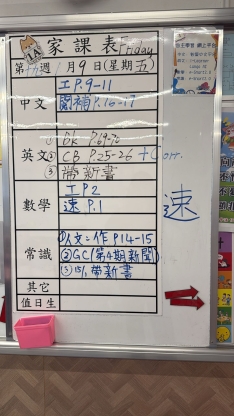 家課表
Friday
第 週 月9日(星期五)
中文
工P.9-11
閱補P.16-17
英文
① Bk P.69-70
② CB P.25-26 + Corr.
③ 帶新書
數學
工P.2
速P.1
速
常識
①人文:作P.14-15
②GC(第4期新聞)
③ 帶新書
其它
值日生